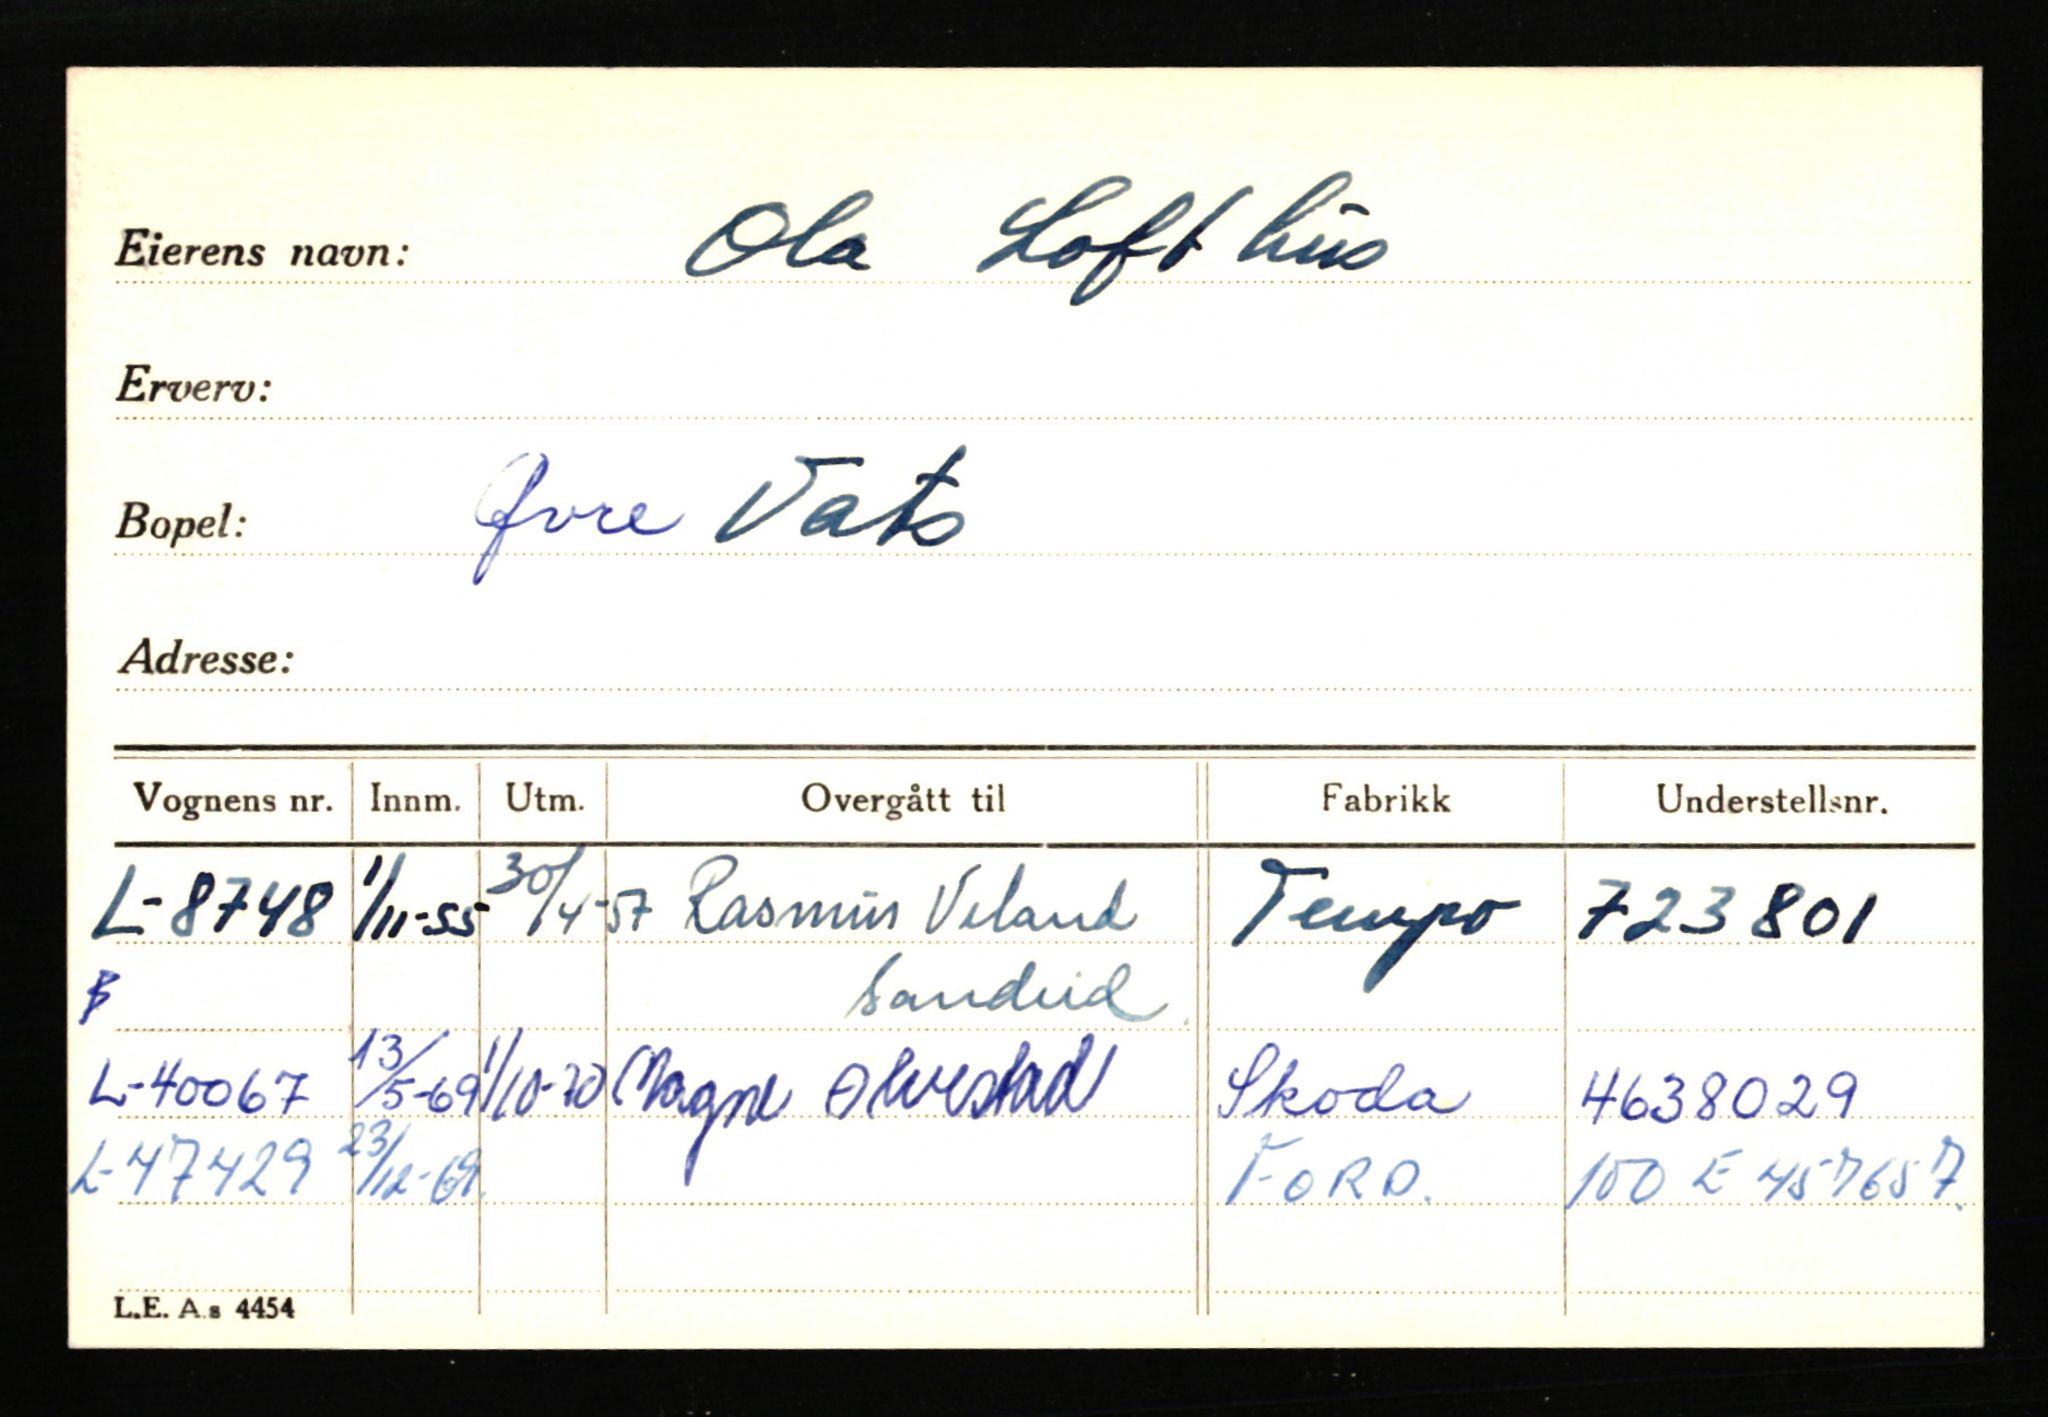 Eierens navn: Ola Lofthus
Erverv:
Bopel: Øvre Vats
Adresse:
Vognens nr. Innm. Utm. Overgått til Fabrikk Understellsnr.
L-8748 1/11-55 30/4-57 Rasmus Veland Tempo 723801
Sandeid
L-40067 13/5-69 1/10-70 Magne Alvestad Skoda 4638029
L-47429 23/12-69. FORD. 100 E 457657.
L.E. A.s 4454